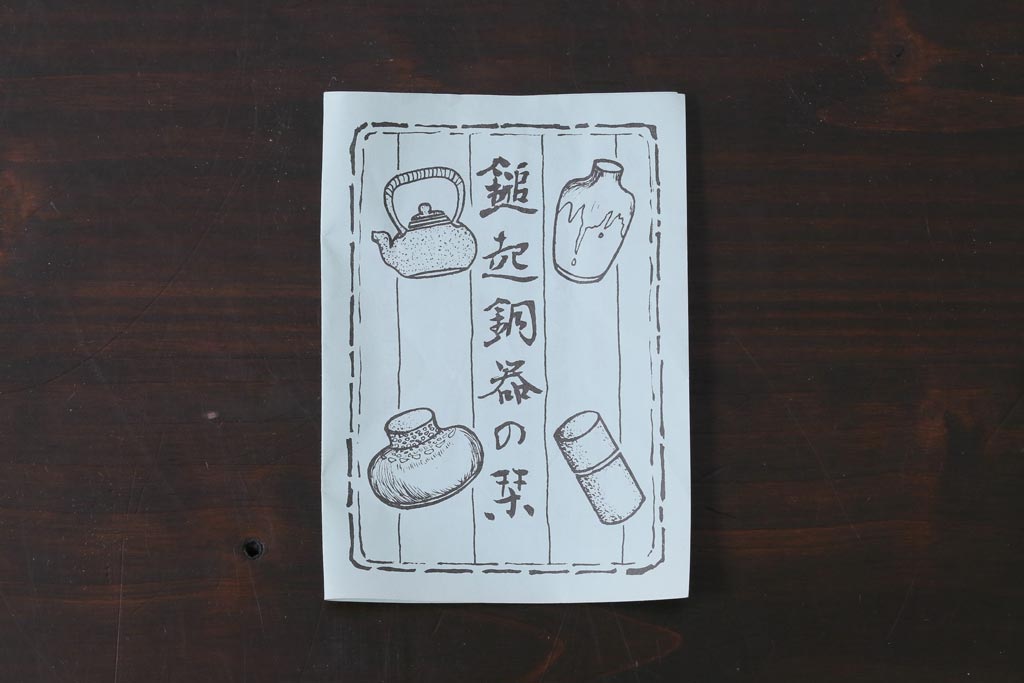 鎚起銅器の栞